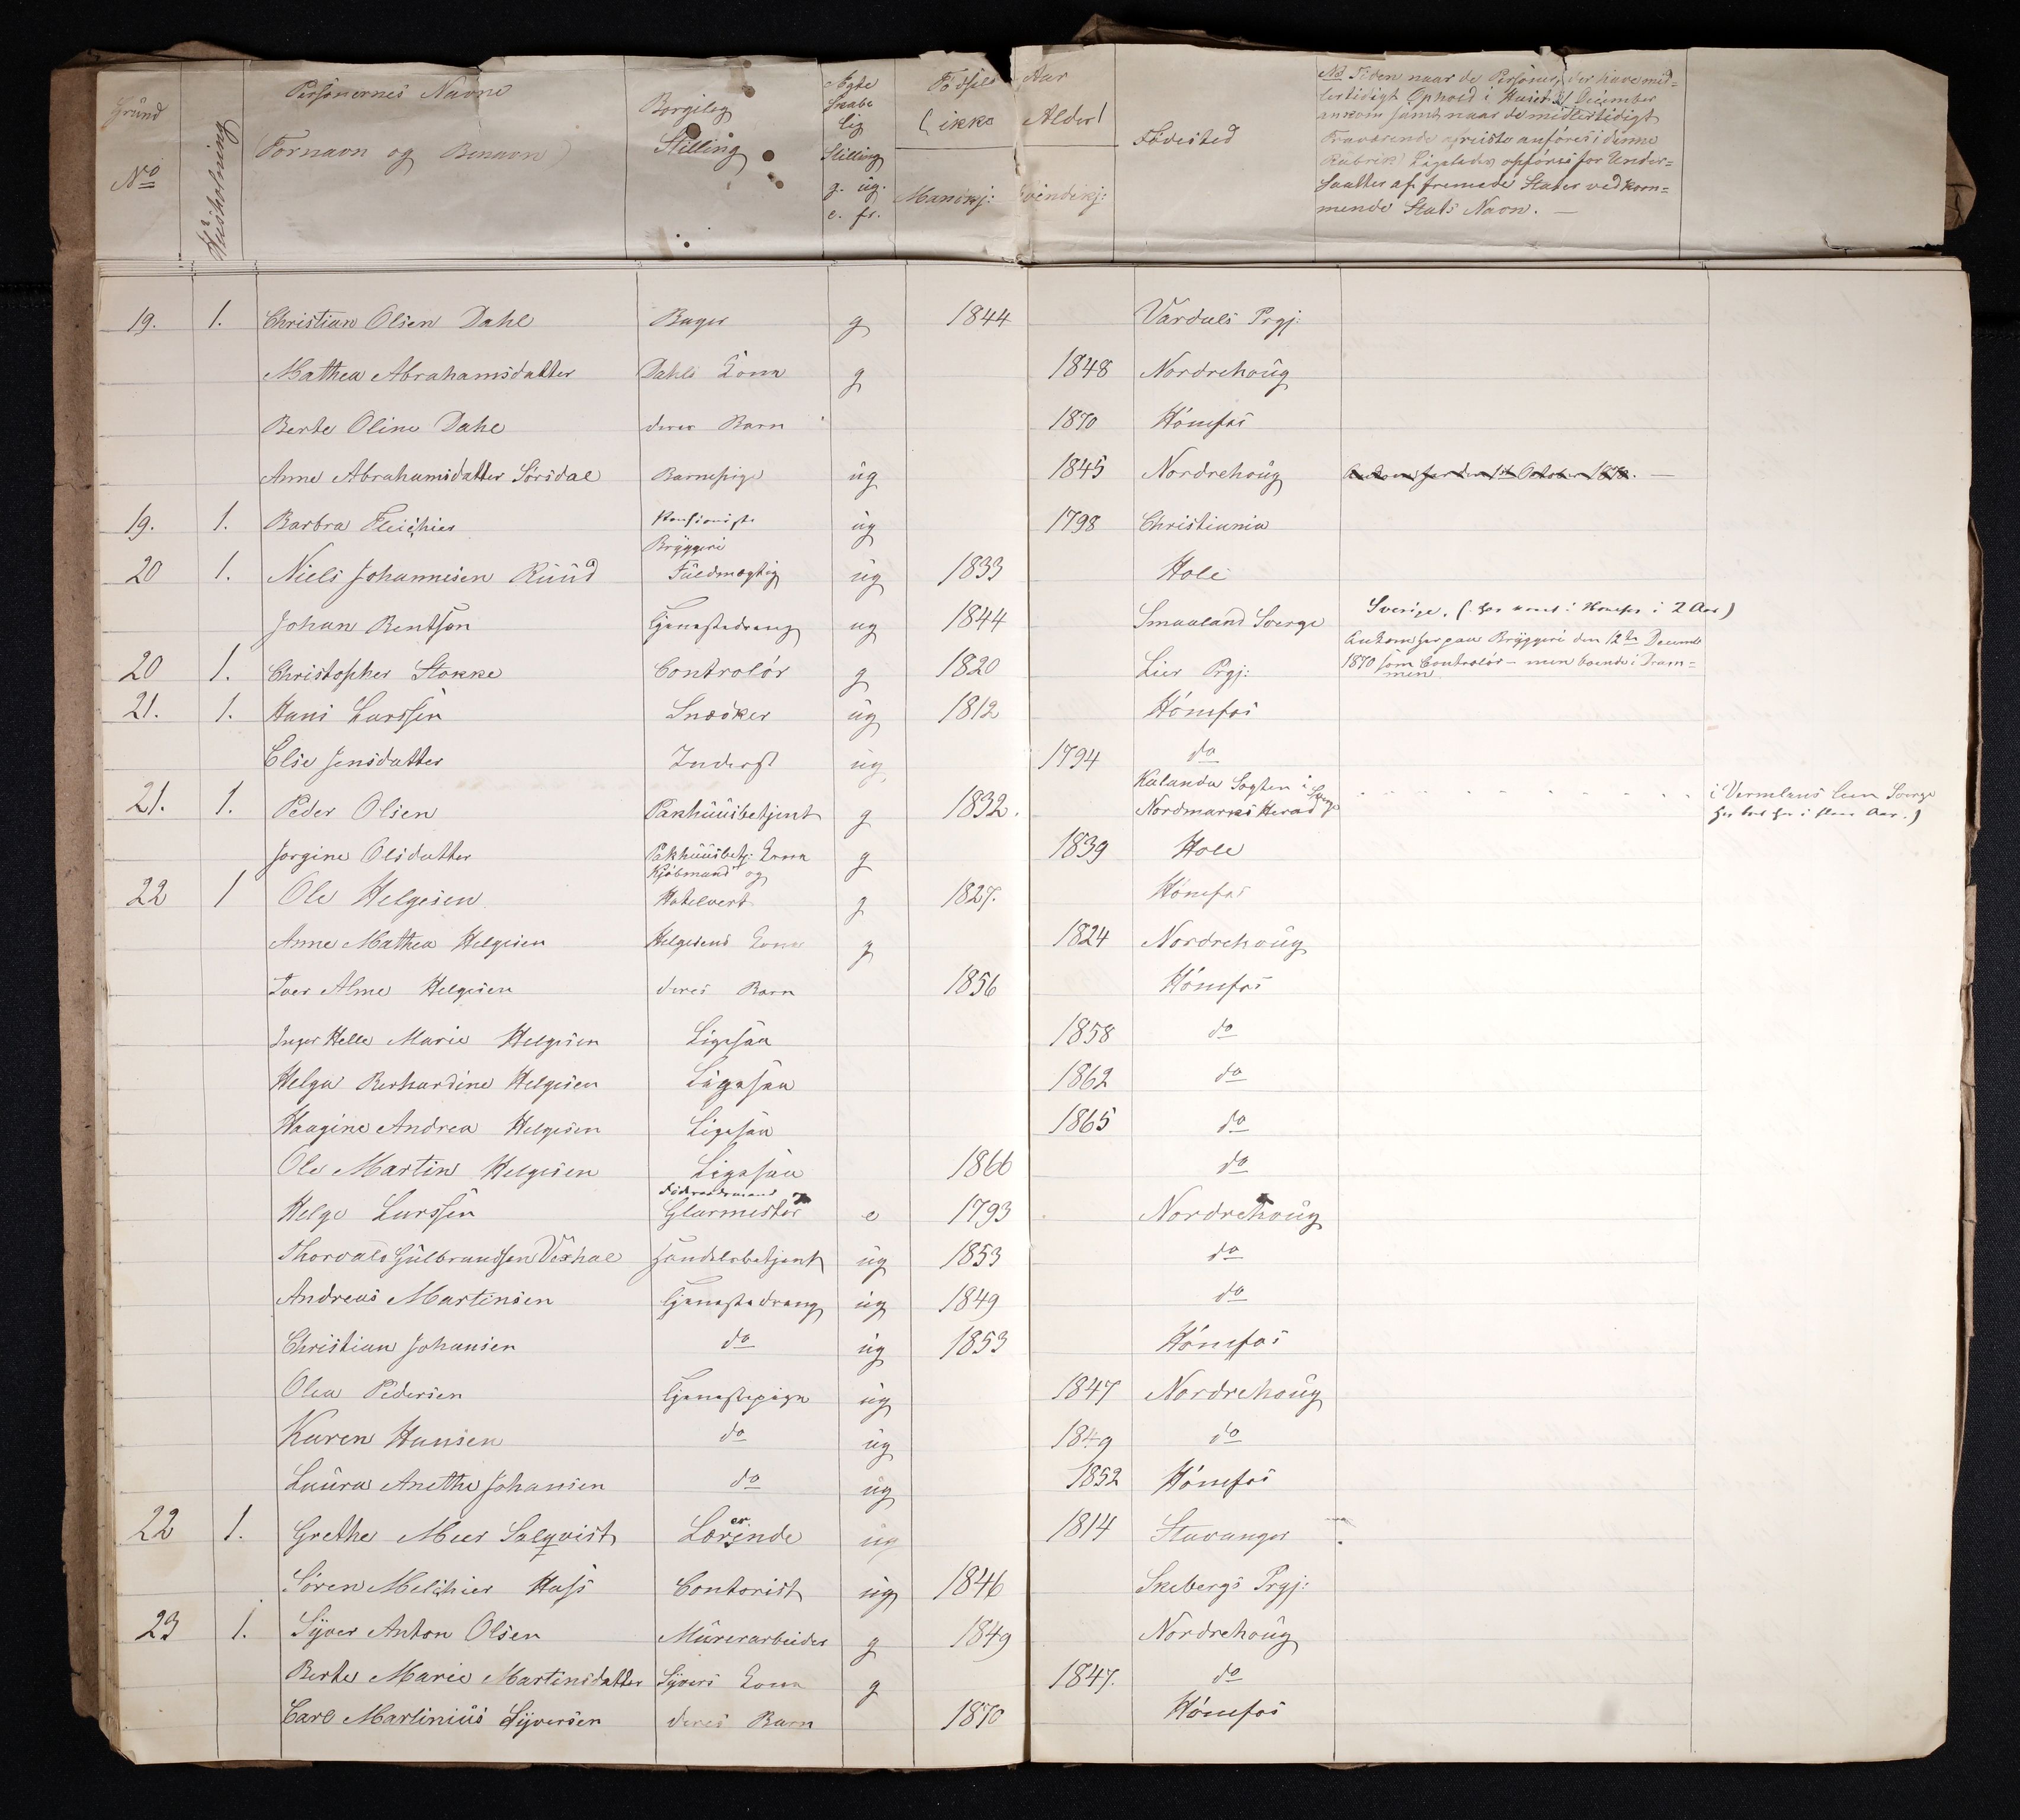 Grund No Husholdning Personernes Navne (Fornavn og Benavn) Borgerlig Stilling Ægteskabelig Stilling g. ug. e. fr. Fødsels Aar (ikke Alder) Mandkj: Qvindekj: Fødested
NB Tiden naar de Personer, der have mid=
lertidigt Ophold i Huset 31 December
ankom samt naar de midlertidigt
Fraværende afreiste anføres i denne
Rubrik. Ligeledes opføres for Under=
saatter af fremede Stater vedkom=
mende Stats Navn. —
19. 1. Christian Olsen Dahl Bager g 1844 Vardals Prgj:
Mathea Abrahamsdatter Dahls Kona g 1848 Nordrehoug
Berte Oline Dahl deres Barn 1870 Hönefos
Anne Abrahamsdatter Sörsdal Barnepige ug 1845 Nordrehoug Ankom her den 1st October 1870. —
19. 1. Barbra Fleicher Pensionist ug 1798 Christiania
20 1. Niels Johannesen Ruud Bryggeri Fuldmægtig ug 1833 Hole
Johan Bentson Tjenestedreng ug 1844 Smaaland Sverge Sverige. (har været i Hönefos i 2 Aar)
20 1. Christopher Stokke Controlör g 1820 Lier Prgj: Ankom her paa Bryggeri den 12te Decemb 1870 som Controlör – men boende i Dram=men
21. 1. Hans Larssen Snedker ug 1812 Hönefos
Elise Jensdatter Inderst ug 1794 do
21. 1. Peder Olsen Pakhuusbetjent g 1832. Kalanda Sogten i Nordmarks Herad Sverge i Vermlans Leen Sverge
Jorgine Olsdatter Pakhuusbetj: Kona g 1839 Hole
22 1 Ole Helgesen Kjöbmand og Hotelvert g 1827. Hönefos
Anne Mathea Helgesen Helgesens Kona g 1824 Nordrehoug
Iver Alme Helgesen deres Barn 1856 Hönefos
Inger Helle Marie Helgesen Ligesaa 1858 do
Helga Berhardine Helgesen Ligesaa 1862 do
Haagine Andrea Helgesen Ligesaa 1865 do
Ole Martin Helgesen Ligesaa 1866 do
Helge Larssen Föderaadsmand og Glarmester e 1793 Nordrehoug
Thorvald Gulbrandsen Vexhal Handelsbetjent ug 1853 do
Andreas Martinsen Tjenestedreng ug 1849 do
Christian Johansen do ug 1853 Hönefos
Olea Pedersen Tjenestepige ug 1847 Nordrehoug
Karen Hansen do ug 1849 do
Laura Anethe Johansen do ug 1852 Hönefos
22 1. Grethe Meer Salqvist Lærerinde ug 1814 Stavanger
Sören Melchier Hass Contorist ug 1846 Skebergs Prgj:
23 1. Syver Anton Olsen Murerarbeider g 1849 Nordrehoug
Berte Marie Martinsdatter Syvers Kona g 1847. do
Carl Martinius Syversen deres Barn 1870 Hönefos